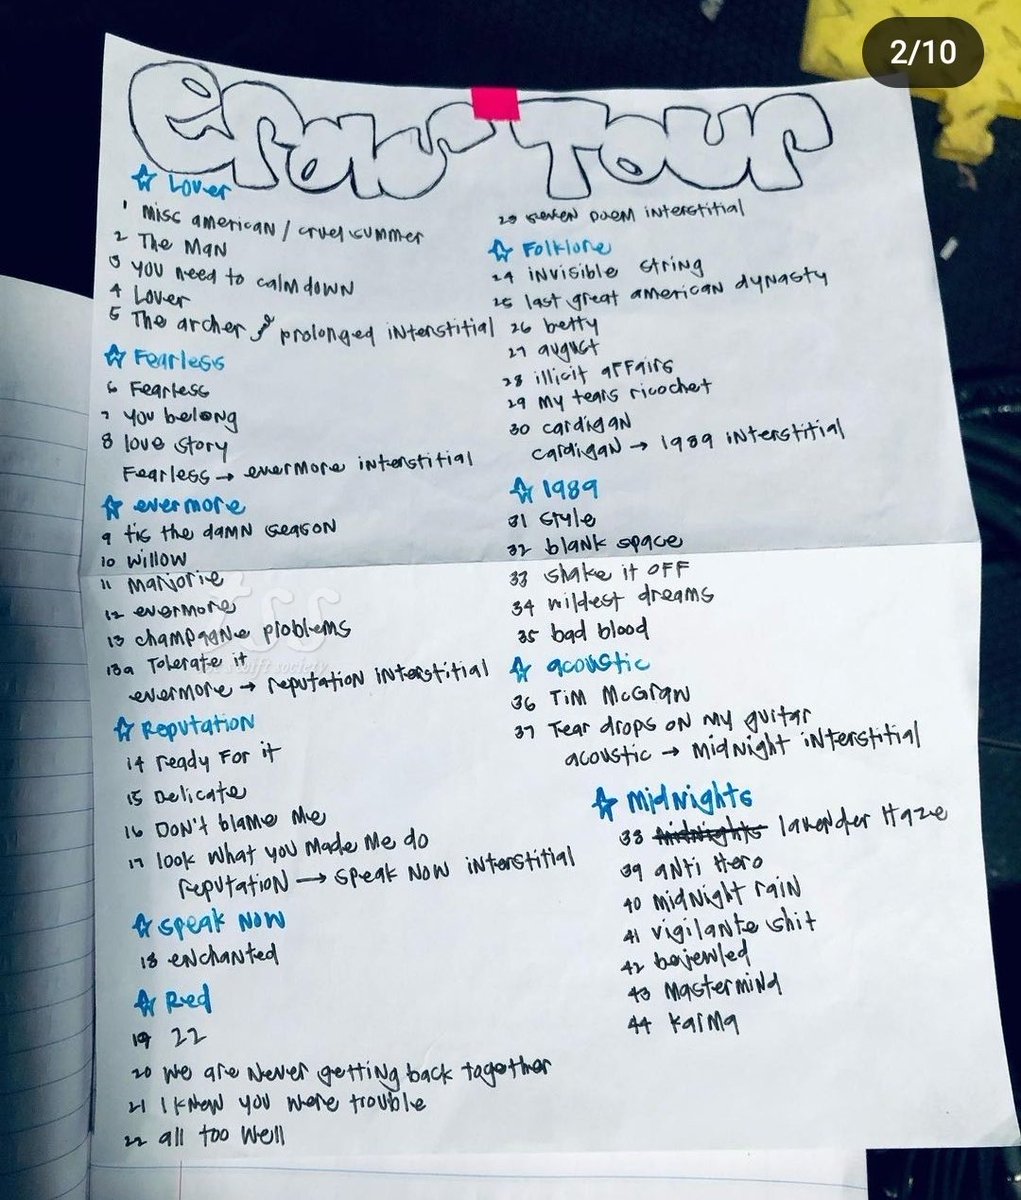 2/10
Eras Tour
☆ Lover
1 miss american / cruel summer
2 The Man
3 you need to calm down
4 Lover
5 The archer & prolonged interstitial
☆ Fearless
6 Fearless
7 you belong
8 love story
Fearless → evermore interstitial
☆ evermore
9 tis the damn season
10 willow
11 marjorie
12 evermore
13 champagne problems
13a Tolerate it
evermore → reputation interstitial
☆ Reputation
14 ready For it
15 Delicate
16 Don't blame Me
17 look what you Made Me do
reputation → speak Now interstitial
☆ speak Now
18 enchanted
☆ Red
19 22
20 we are Never getting back together
21 I knew you were trouble
22 all too well
23 seven poem interstitial
☆ Folklore
24 invisible string
25 last great american dynasty
26 betty
27 august
28 illicit affairs
29 my tears ricochet
30 cardigan
cardigan → 1989 interstitial
☆ 1989
31 style
32 blank space
33 shake it OFF
34 wildest dreams
35 bad blood
☆ acoustic
36 Tim McGraw
37 Tear drops on my guitar
acoustic → midnight interstitial
☆ midnights
38 midnights lavender Haze
39 anti Hero
40 midnight rain
41 vigilante shit
42 bejewled
43 Mastermind
44 karma
swift society